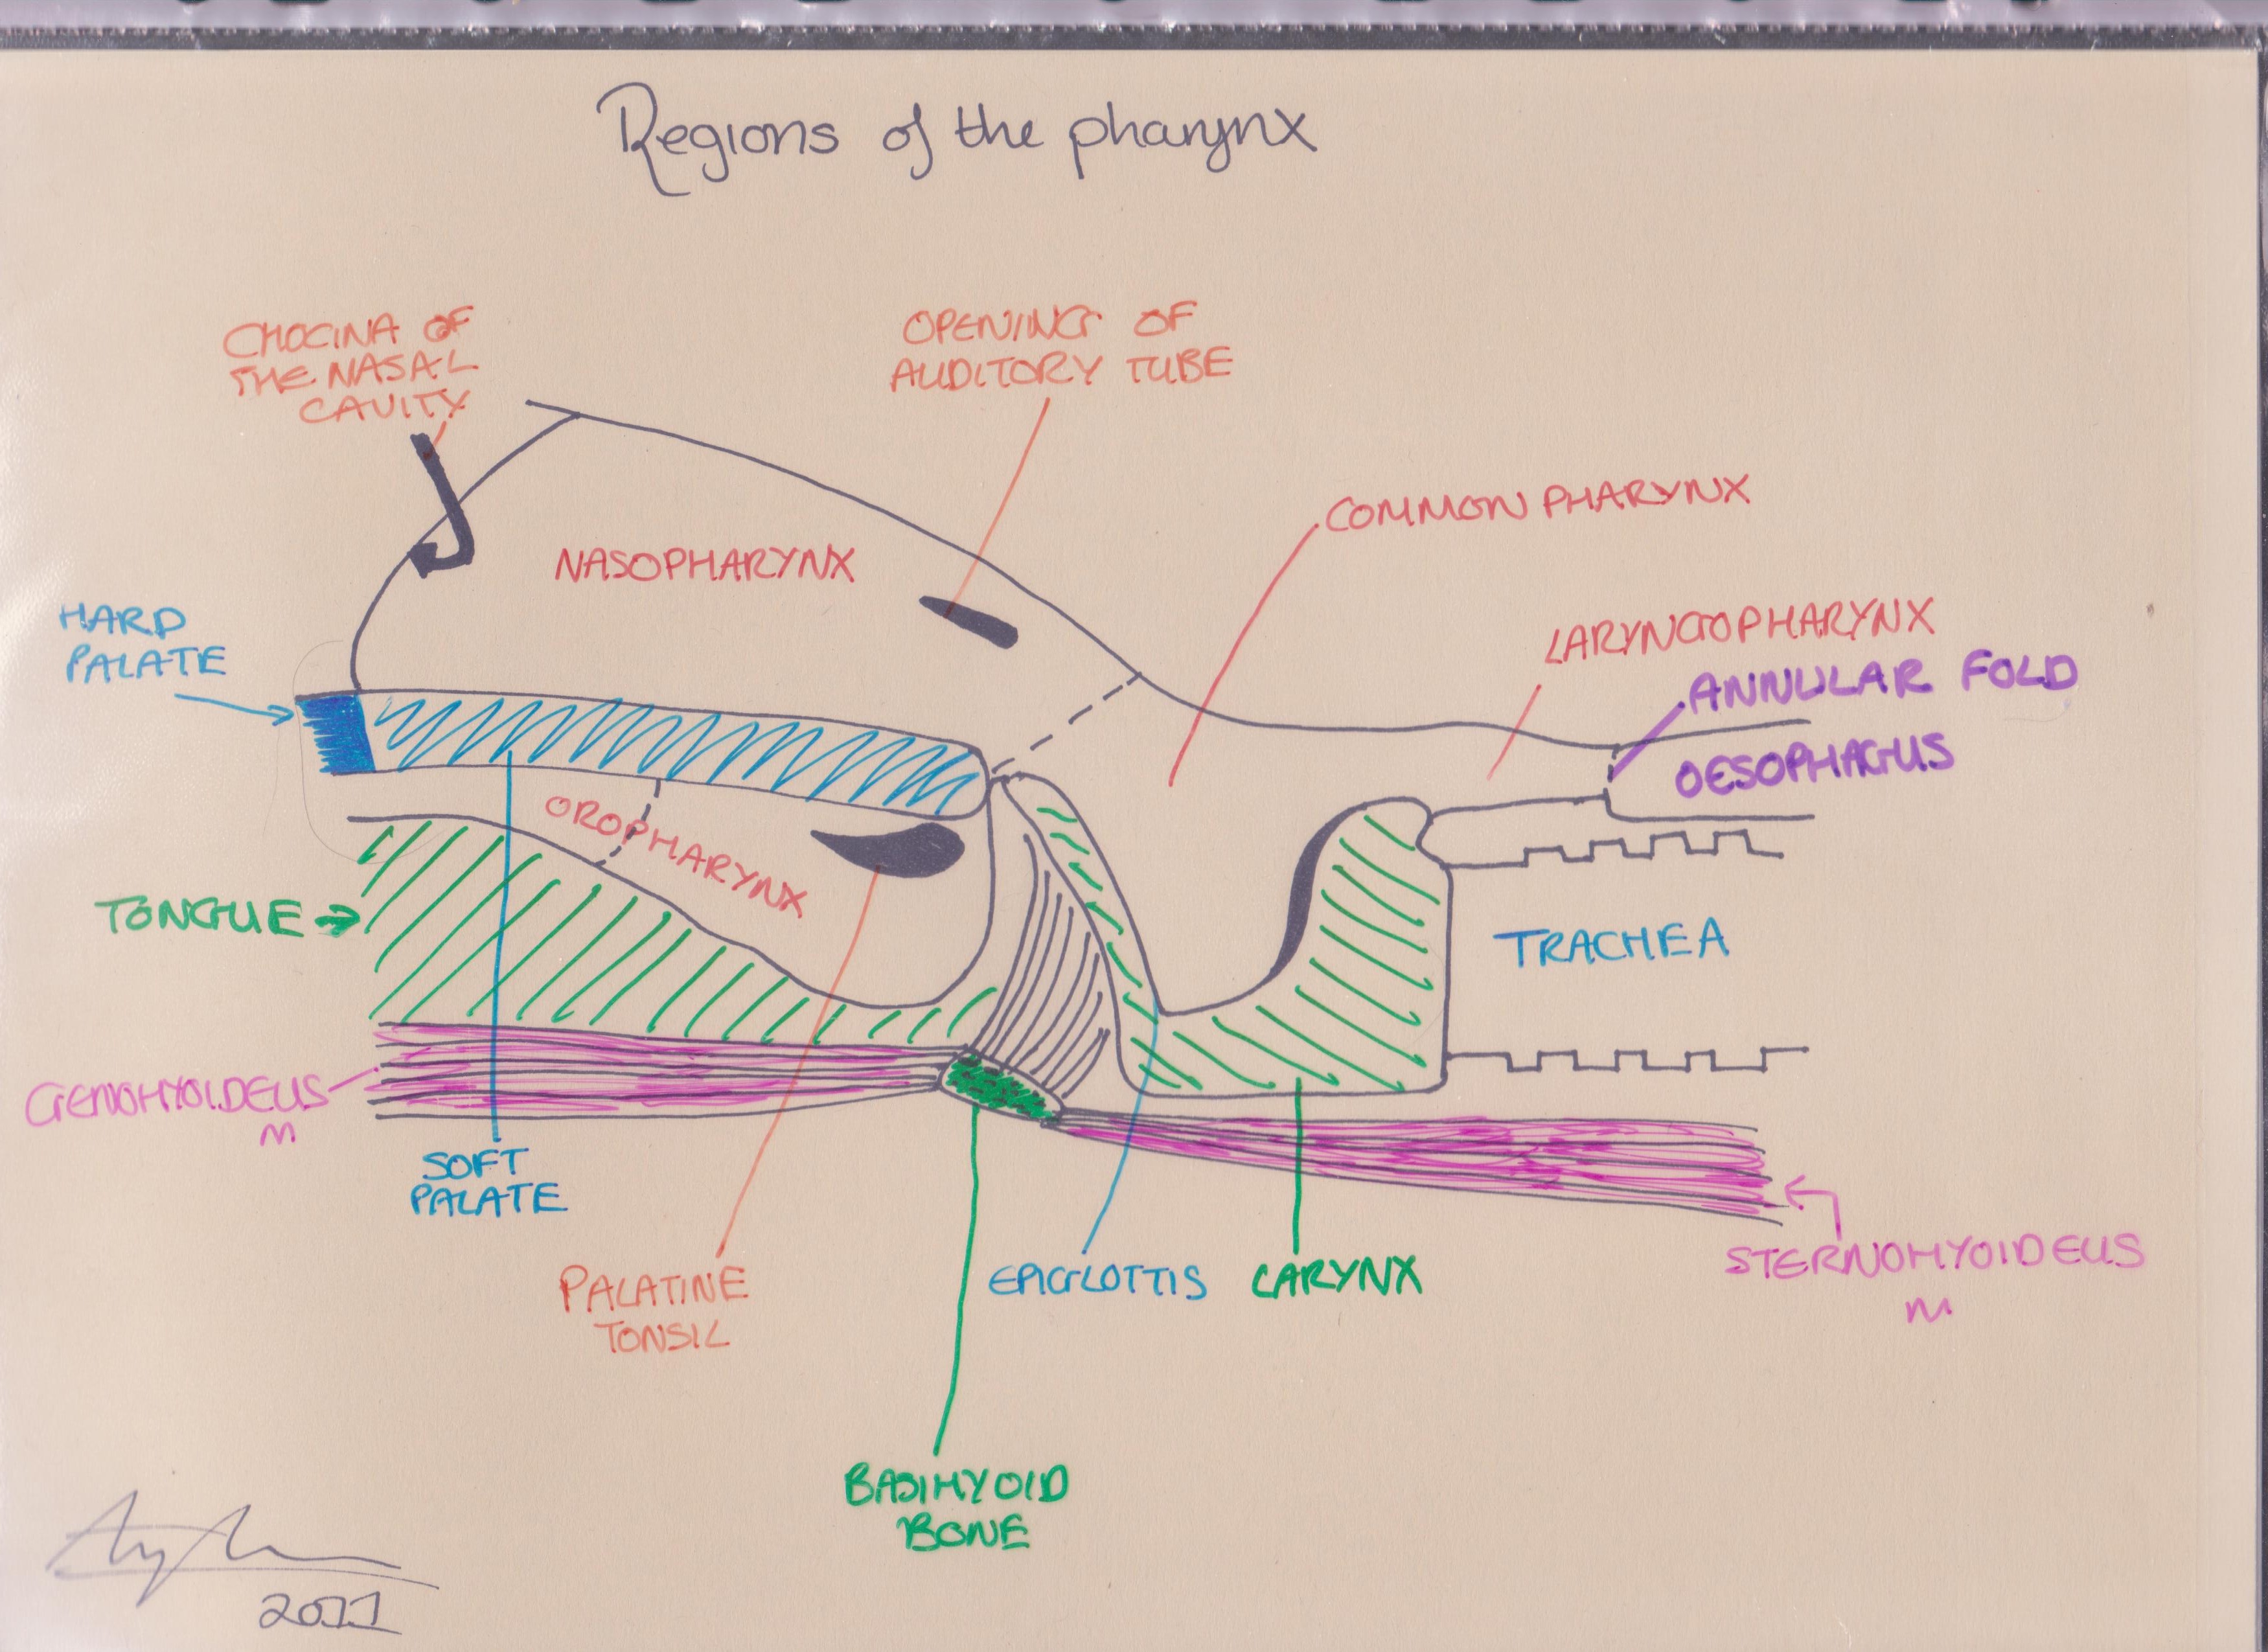 Regions of the pharynx
CHOCINA OF
THE NASAL
CAVITY
OPENING OF
AUDITORY TUBE
COMMON PHARYNX
NASOPHARYNX
HARD
PALATE
LARYNGOPHARYNX
ANNULAR FOLD
OESOPHAGUS
OROPHARYNX
TONGUE
TRACHEA
GENOHYOIDEUS
M
SOFT
PALATE
PALATINE
TONSIL
EPIGLOTTIS
LARYNX
STERNOHYOIDEUS
M
BASIHYOID
BONE
2011